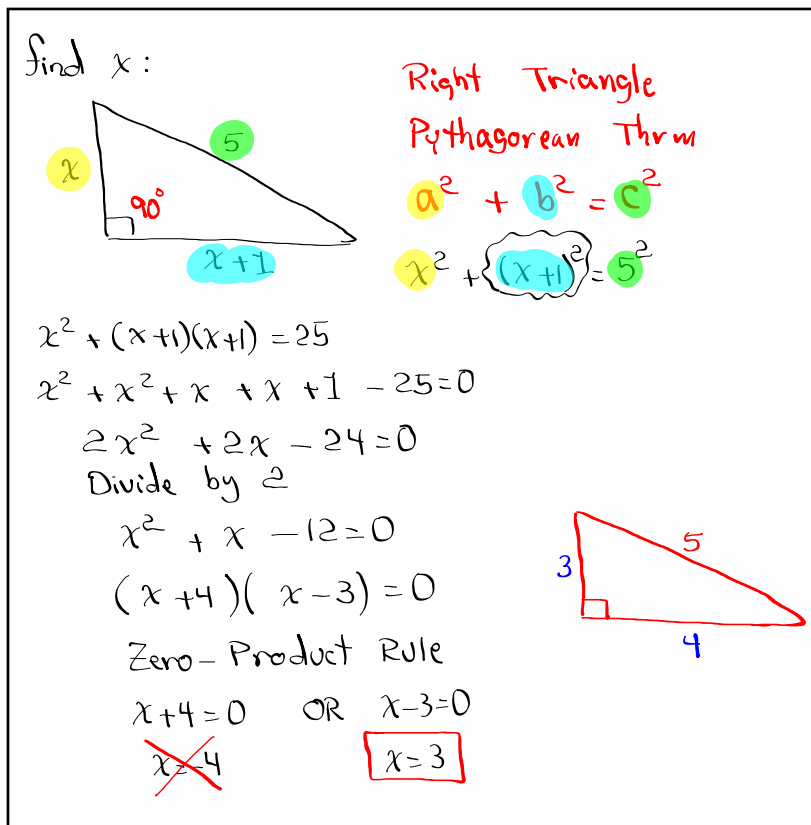 find x:
x
5
90°
x+1
Right Triangle
Pythagorean Thrm
a² + b² = c²
x² + (x+1)² = 5²
x² + (x+1)(x+1) = 25
x² + x² + x + x + 1 - 25 = 0
2x² + 2x - 24 = 0
Divide by 2
x² + x - 12 = 0
(x+4)(x-3) = 0
Zero-Product Rule
x+4=0 OR x-3=0
x=-4 x=3
3
5
4